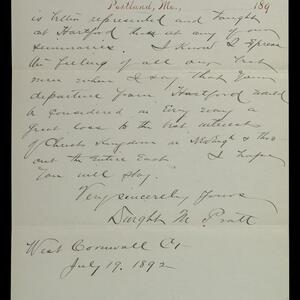 Portland, Me., 189
is better represented and taught
at Hartford than at any of our
seminaries. I know I express
the feeling of all our best
men when I say that your
departure from Hartford would
be considered as every way a
great loss to the best interests
of Christs Kingdom in New Eng'd & thro
out the entire East. I hope
You will stay.
Very sincerely yours
Dwight M. Pratt
West Cornwall Ct
July 19. 1892